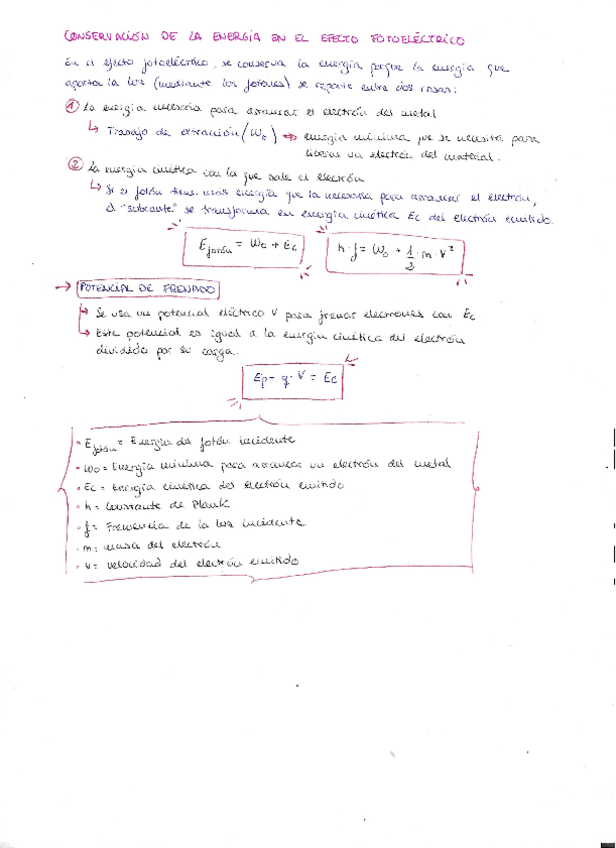 CONSERVACIÓN DE LA ENERGÍA EN EL EFECTO FOTOELÉCTRICO
En el efecto fotoeléctrico, se conserva la energía porque la energía que
aporta la luz (mediante los fotones) se reparte entre dos cosas:
① La energía necesaria para arrancar el electrón del metal
↳ Trabajo de extracción (W₀) → energía mínima que se necesita para
liberar un electrón del material.
② La energía cinética con la que sale el electrón
↳ Si el fotón tiene más energía que la necesaria para arrancar el electrón,
el "sobrante" se transforma en energía cinética Ec del electrón emitido.
E fotón = W₀ + Ec
h · f = W₀ + 1/2 · m · V²
→ POTENCIAL DE FRENADO
↳ Se usa un potencial eléctrico V para frenar electrones con Ec
↳ Este potencial es igual a la energía cinética del electrón
dividido por su carga.
Ep = q · V = Ec
• E fotón = Energía del fotón incidente
• W₀ = Energía mínima para arrancar un electrón del metal
• Ec = Energía cinética del electrón emitido
• h = Constante de Plank
• f = Frecuencia de la luz incidente
• m = masa del electrón
• v = velocidad del electrón emitido